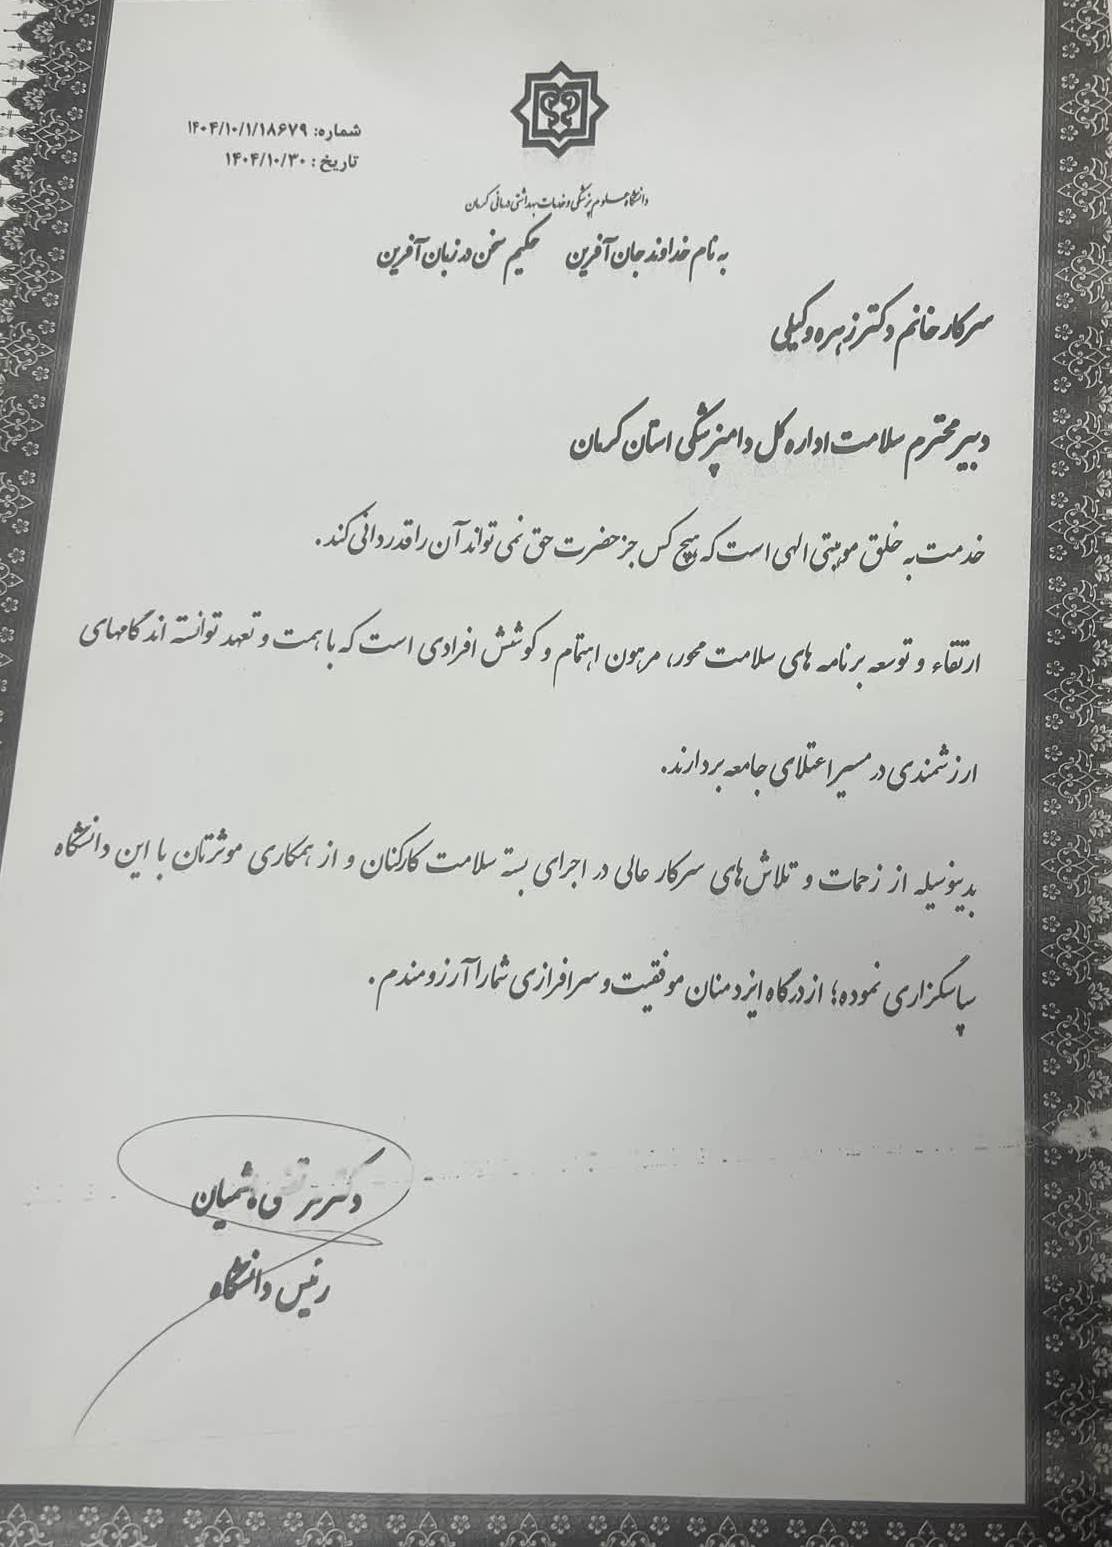 شماره: ۱۴۰۴/۱۰/۱/۱۸۶۷۹
تاریخ: ۱۴۰۴/۱۰/۳۰
دانشگاه علوم پزشکی و خدمات بهداشتی درمانی کرمان
به نام خداوند جان آفرین حکیم سخن در زبان آفرین
سرکار خانم دکتر زهره وکیلی
دبیر محترم سلامت اداره کل دامپزشکی استان کرمان
خدمت به خلق موهبتی الهی است که هیچ کس جز حضرت حق نمی تواند آن را قدردانی کند.
ارتقاء و توسعه برنامه های سلامت محور، مرهون اهتمام و کوشش افرادی است که با همت و تعهد توانسته اند گامهای
ارزشمندی در مسیر اعتلای جامعه بردارند.
بدینوسیله از زحمات و تلاش‌های سرکار عالی در اجرای بسته سلامت کارکنان و از همکاری موثرتان با این دانشگاه
سپاسگزاری نموده؛ از درگاه ایزد منان موفقیت و سرافرازی شما را آرزومندم.
دکتر
رئیس دانشگاه